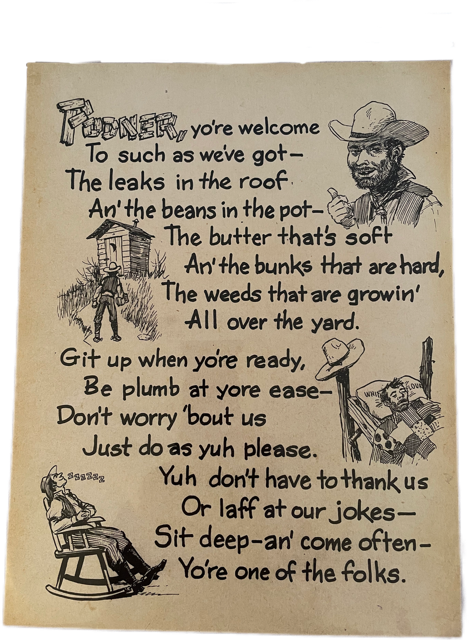 PODNER, yo're welcome
To such as we've got—
The leaks in the roof
An' the beans in the pot—
The butter that's soft
An' the bunks that are hard,
The weeds that are growin'
All over the yard.
Git up when yo're ready,
Be plumb at yore ease—
Don't worry 'bout us
Just do as yuh please.
Yuh don't have to thank us
Or laff at our jokes—
Sit deep—an' come often—
Yo're one of the folks.
FLOUR
zzzzzz